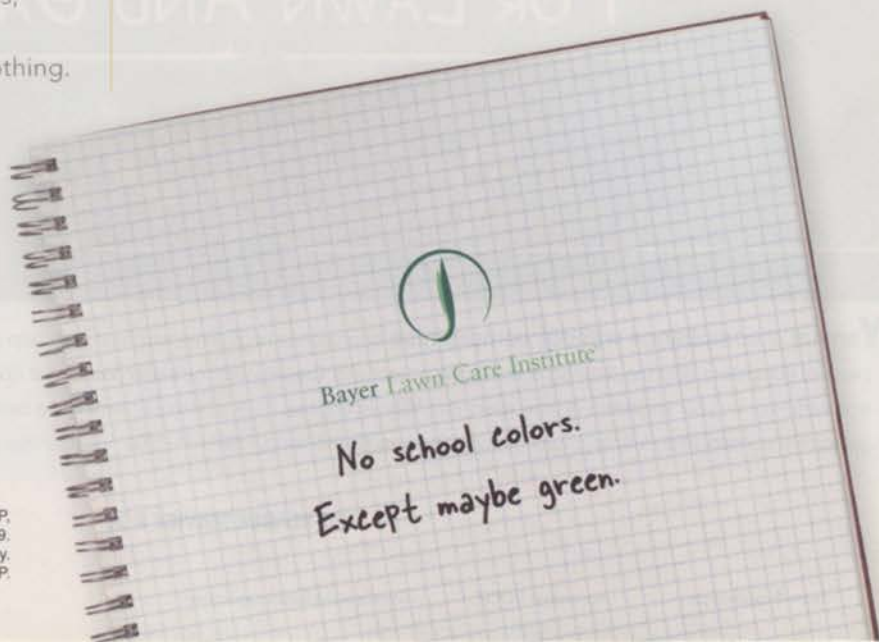 othing.
Bayer Lawn Care Institute
No school colors.
Except maybe green.
P,
9.
y.
P.